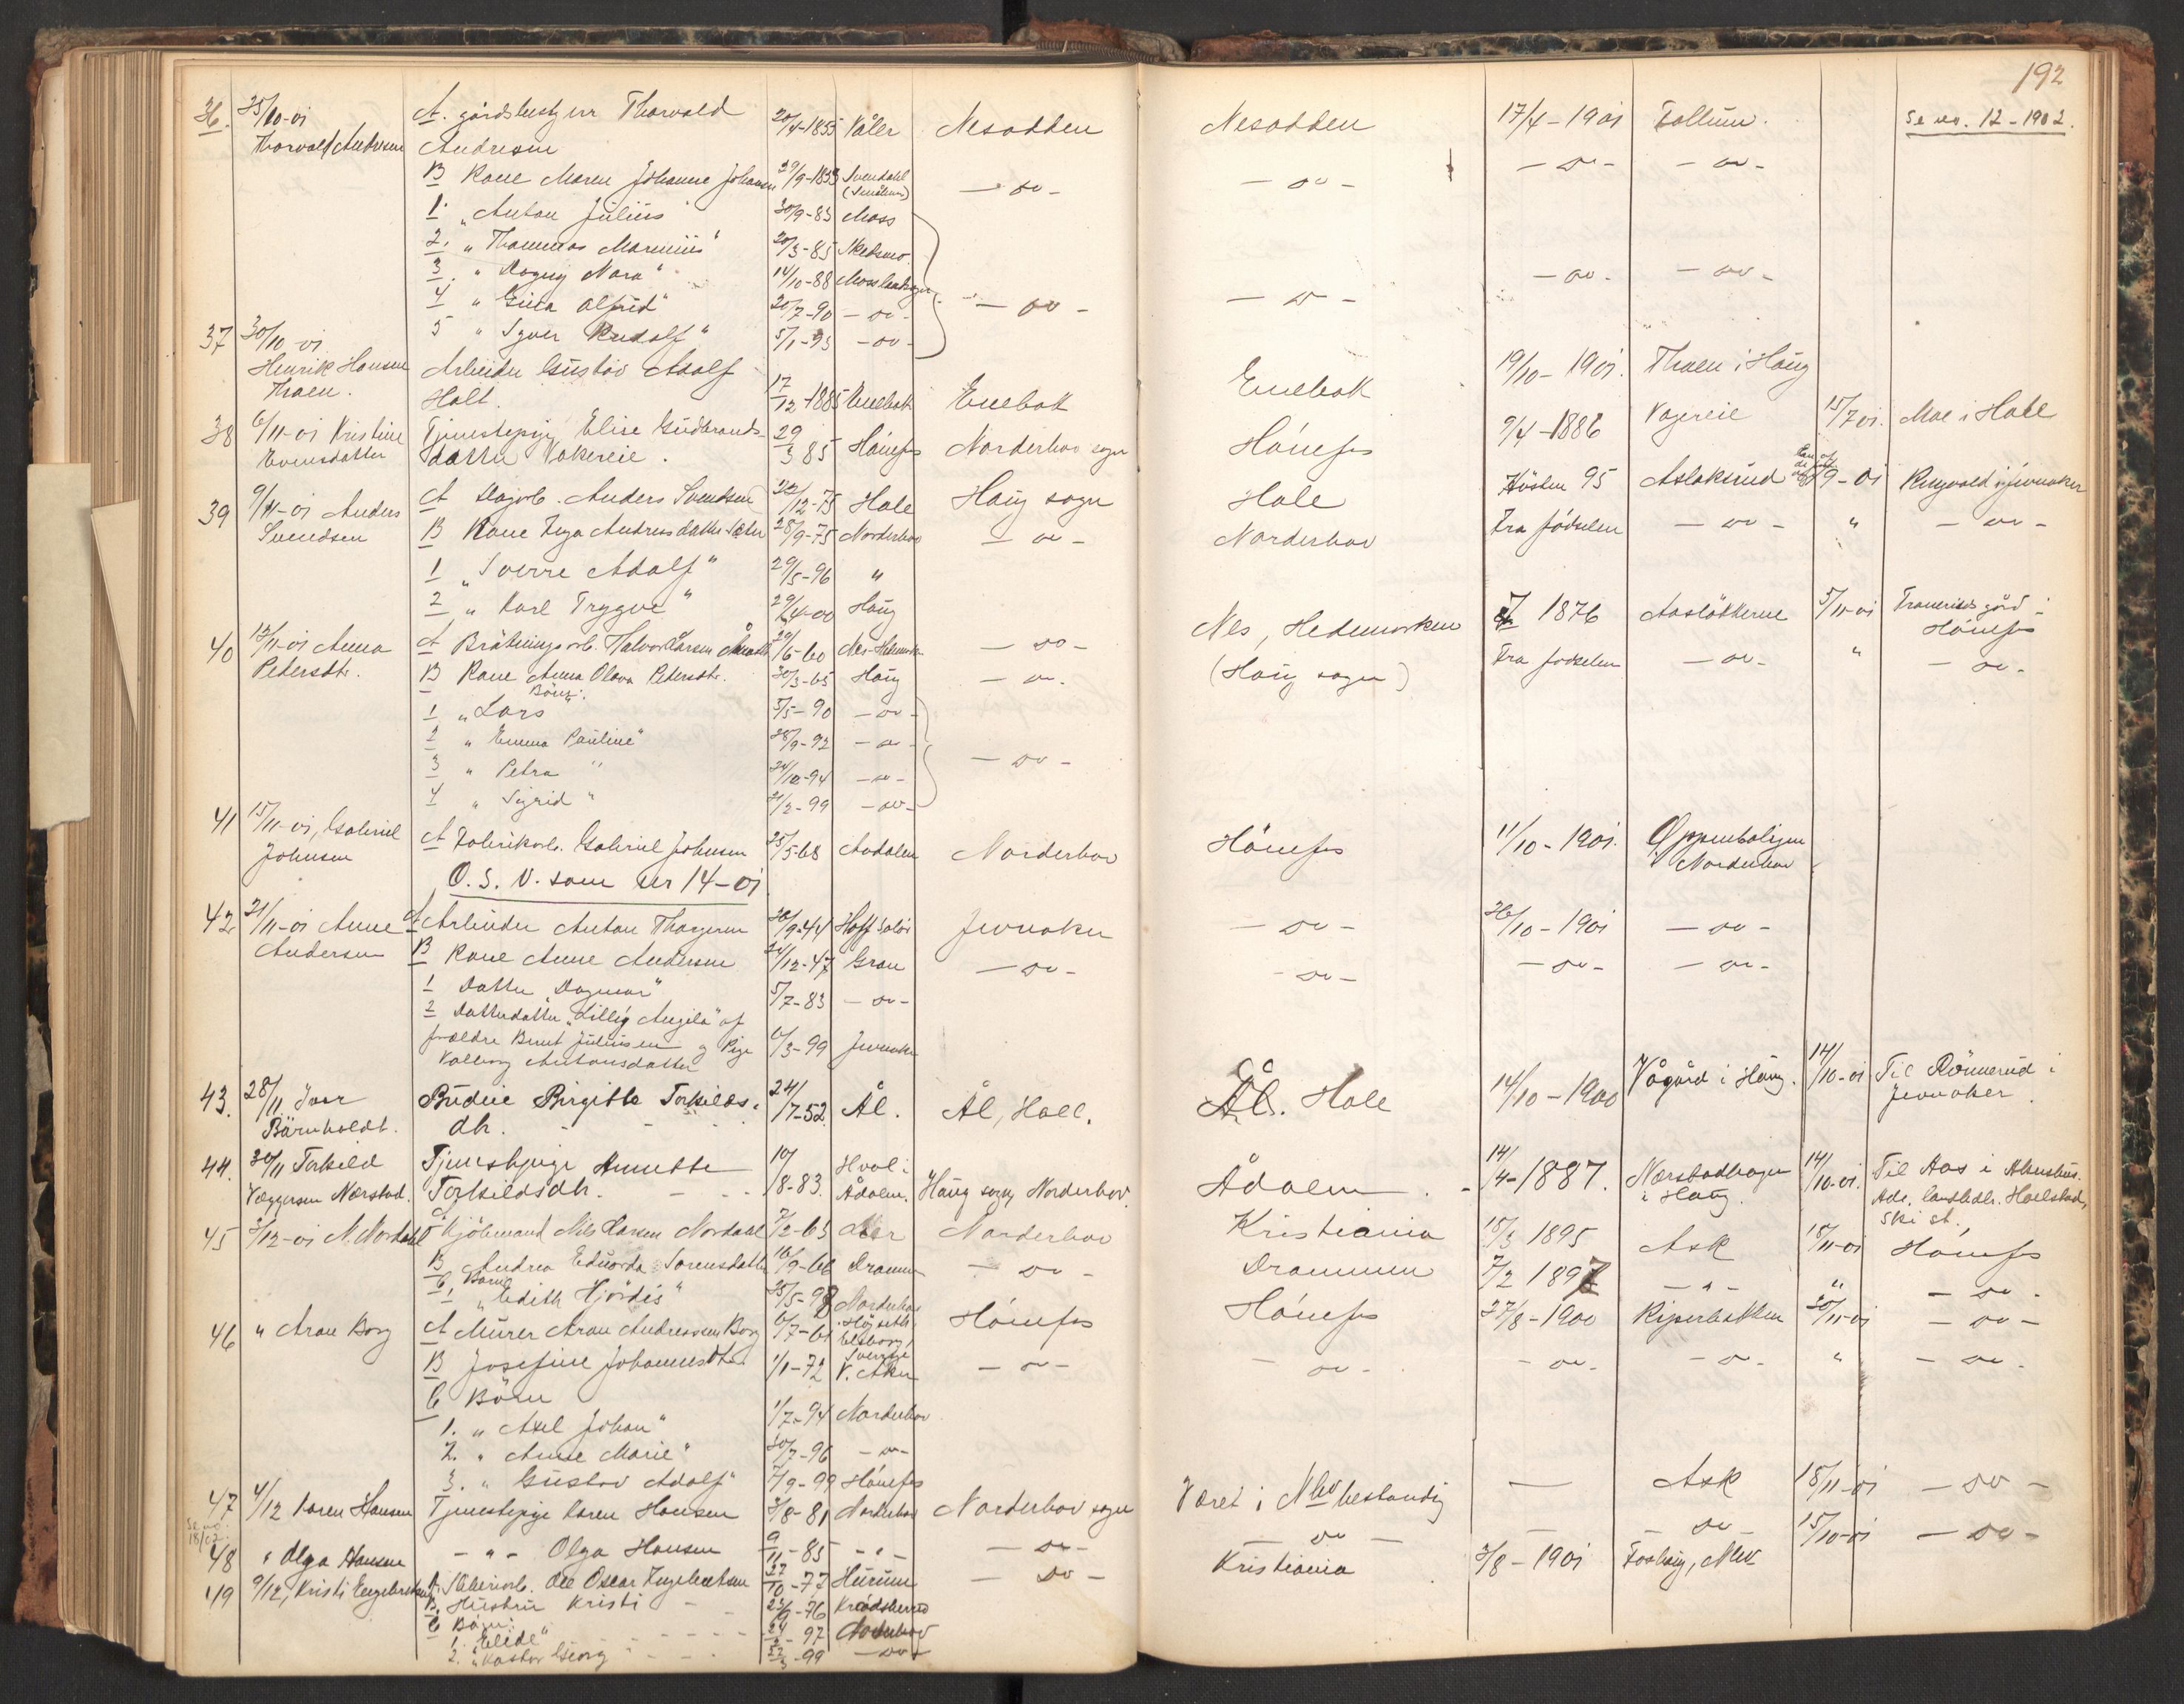 192
36. 25/10-01 A. gårdsbestyrer Thorvald 20/4-1855 Våler Nesodden Nesodden 17/4-1901 Follum. Se no. 12-1902.
Thorvald Andresen Andresen
B Kone Maren Johanne Johansen 29/9-1853 -do- -do- -do- -do-
1. "Anton Julius" 30/9-83 Moss
2. "Thommas Marinius" 20/3-85 Skedsmo.
3. "Dagny Nora" 14/10-88 -do- -do-
4 "Gina Alfrid" 20/7-90 -do- -do- -do-
5 "Syver Rudolf" 5/1-93 -do-
37 30/10-01
Henrik Hansen Arbeider Gustav Adolf 17/12-1885 Enebak Enebak Enebak 19/10-1901. Thoen i Haug
Thoen. Holt.
38 6/11-01 Kristine Tjenestepige Elise Gudbrands- 29/3 85 Hönefos Norderhov sogn Hönefos 9/4-1886 15/7 01. Moe i Hole
Evensdatter datter Vakereie.
39 9/11-01 Anders A Dagarb. Anders Svendsen 22/12-75 Hole Haug sogn Hole Hösten 95 Aslaksrud 9-01 Ringvold i Jevnaker
Svendsen B Kone Inga Andreasdatter 28/9-75 Norderhov -do- Norderhov Fra födselen -do- " -do-
1 "Sverre Adolf" 29/5-96 "
2 "Karl Trygve" 29/4-00 Haug
40 13/11-01 Anna A Halvor Larsen 29/6-60 Nes-Hedemark -do- Nes, Hedemarken 1876 Aaslökkerne 5/11-01 gård i
Petersdtr. Hönefos
B Kone Anna Olava Petersdtr. 30/3-65 Haug -do- (Haug sogn) Fra fodselen -do- " -do-
Börn:
1 "Lars" 5/5-90 -do-
2 "Emma Pauline" 28/9-92 -do-
3 "Petra" 24/10-94 -do- -do-
4 "Sigrid" 21/2-99 -do-
41 15/11-01, Gabriel A Fabrikarb. Gabriel Johnsen 25/5-68 Aadalen Norderhov Hönefos 11/10-1901. Oppenboligen
Johnsen i Norderhov
O. S. V. som nr 14-01
42 21/11-01 Anne A Arbeider Anton Thorgersen 30/9-44 Hoff Solör Jevnaker -do- 26/10-1901 -do-
Andersen B Kone Anne Andersen 24/12-47 Gran -do- -do- -do- -do-
1 Datter "Dagmar" 5/7-83 -do-
2 Datterdatter "Lilly Angela" af
forældre Bernt Juliussen og Pige 6/3-99 Jevnaker
Valborg Antonsdatter
43. 28/11 Ivar Budeie Birgitte Torkilds- 24/7-52 Ål. Ål, Hall. Ål. Hole 14/10-1900 Vågård i Haug. 14/10-01 Til Rönnerud i
Bärnholdt. dtr. Jevnaker.
44. 30/11 Torkild Tjenestepige Annette 10/8-83. Hval i Haug sogn, Norderhov. Ådalen 14/4-1887. Nærstadhagen 14/10-01. Til Aas i Akershus.
Væggersen Nærstad. Torkildsdtr. Ådalen. i Haug. Adr. landhdlr. Holstad,
Ski st.
45 3/12-01 N. Nordahl A Kjöbmand Nils Larsen Nordahl 7/2-63 Norderhov Kristiania 15/3 1895 Ask 18/11-01 Hönefos
B Andrea Eduarda Sorensdatter 16/9-66 Drammen -do- Drammen 7/2 1897 -"- " -do-
C Börn
1. "Edith Hjördis" 25/5-98 Norderhov
46 " Aron Borg A Murer Aron Andreassen Borg 6/7-61 Elfsborg, Sverige Hönefos Hönefos 27/8-1900 Riperbakken 20/11-01 -do-
B Josefine Johannesdtr. 1/1-72 V. Aker -do- -do- -do- -do- " -do-
C Börn
1. "Axel Johan" 1/7-94 Norderhov
2. "Anne Marie" 30/7-96 -do-
3. "Gustav Adolf" 7/9-99 Hönefos
47 4/12 Karen Hansen Tjenestepige Karen Hansen 3/8-81 Norderhov Norderhov sogn Været i Nhov bestandig — Ask 18/11-01 -do-
Se no.
18/02.
48 " Olga Hansen -"- Olga Hansen 9/11-85 -"- -do- -do- — -do- 15/10-01 -do-
49 9/12, Kristi Engebretsen A. Ole Oscar Engebretsen 22/10-77 Hurum -do- Kristiania 3/8-1901 Fosberg, Nhv
B. Hustru Kristi 23/9-76 Krødsherred
C Börn:
1. "Elide" 97 Norderhov
2. "Kastor Georg 99 -do-